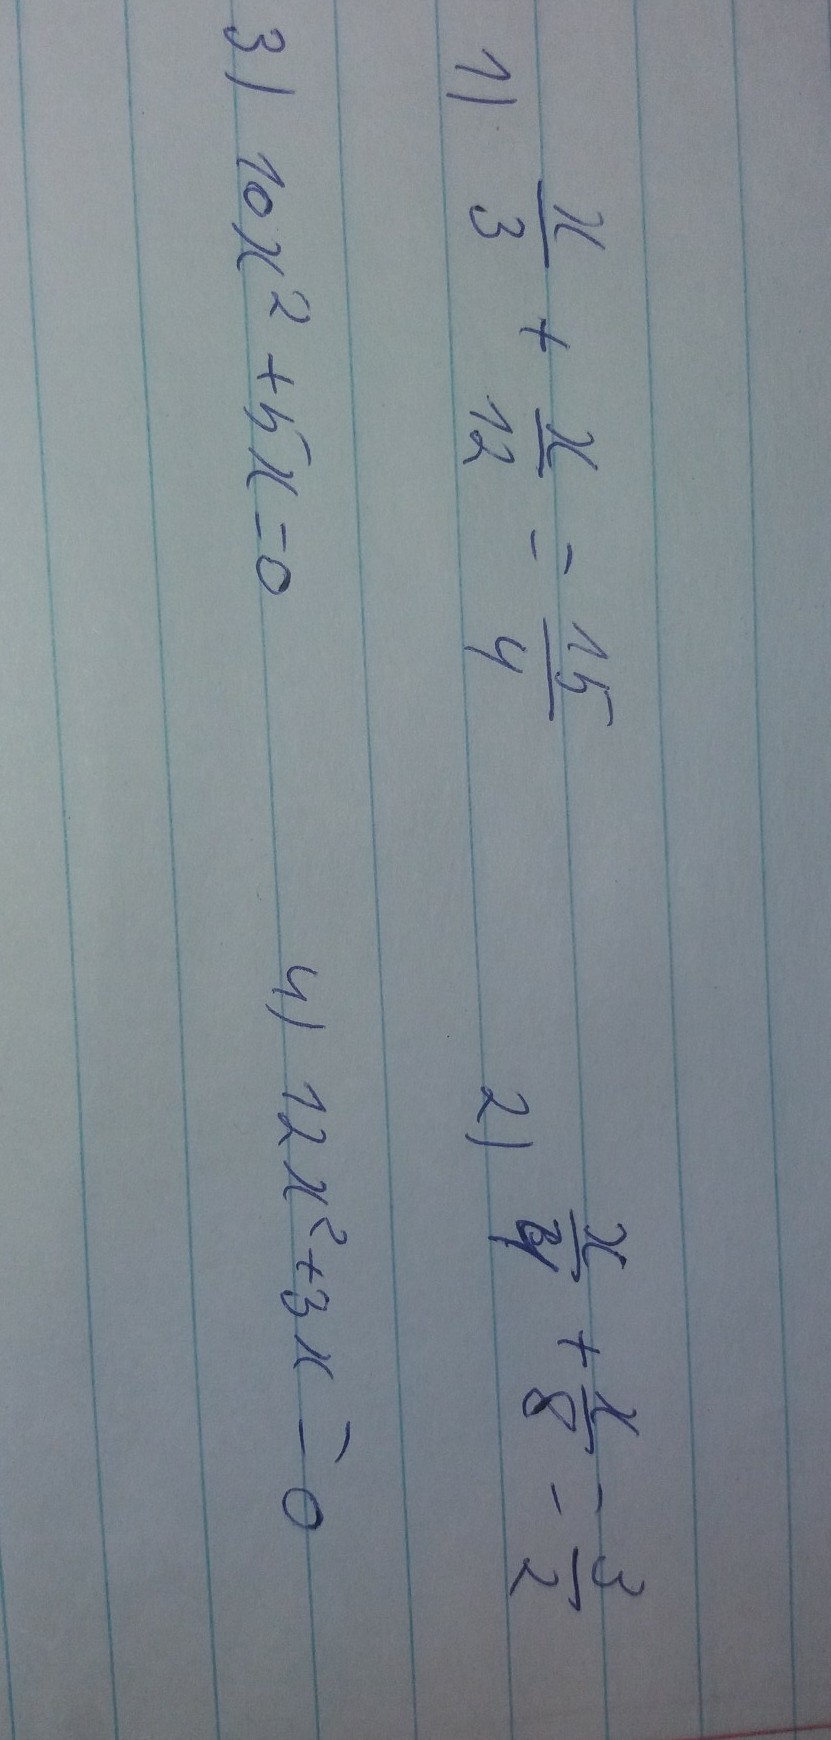 1) x/3 + x/12 = 15/4 2) x/4 + x/8 = 3/2
3) 10x² + 5x = 0 4) 12x² + 3x = 0